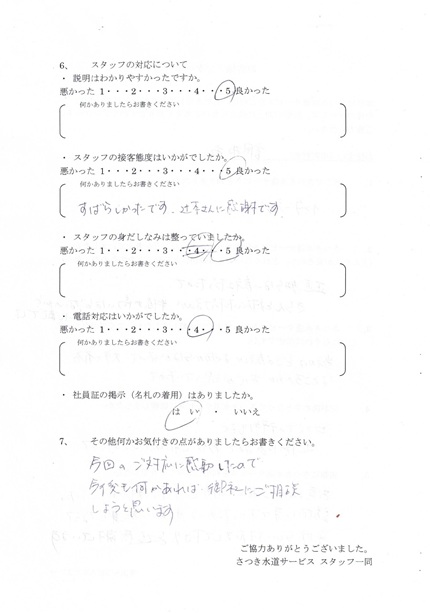 6、 スタッフの対応について
・ 説明はわかりやすかったですか。
悪かった 1・・・2・・・3・・・4・・・5 良かった
何かありましたらお書きください
・ スタッフの接客態度はいかがでしたか。
悪かった 1・・・2・・・3・・・4・・・5 良かった
何かありましたらお書きください
すばらしかったです。辻本さんに感謝です
・ スタッフの身だしなみは整っていましたか。
悪かった 1・・・2・・・3・・・4・・・5 良かった
何かありましたらお書きください
・ 電話対応はいかがでしたか。
悪かった 1・・・2・・・3・・・4・・・5 良かった
何かありましたらお書きください
・ 社員証の掲示（名札の着用）はありましたか。
はい ・ いいえ
7、 その他何かお気付きの点がありましたらお書きください。
今回のご対応に感動したので
今後も何かあれば御社にご相談
しようと思います
ご協力ありがとうございました。
さつき水道サービス スタッフ一同